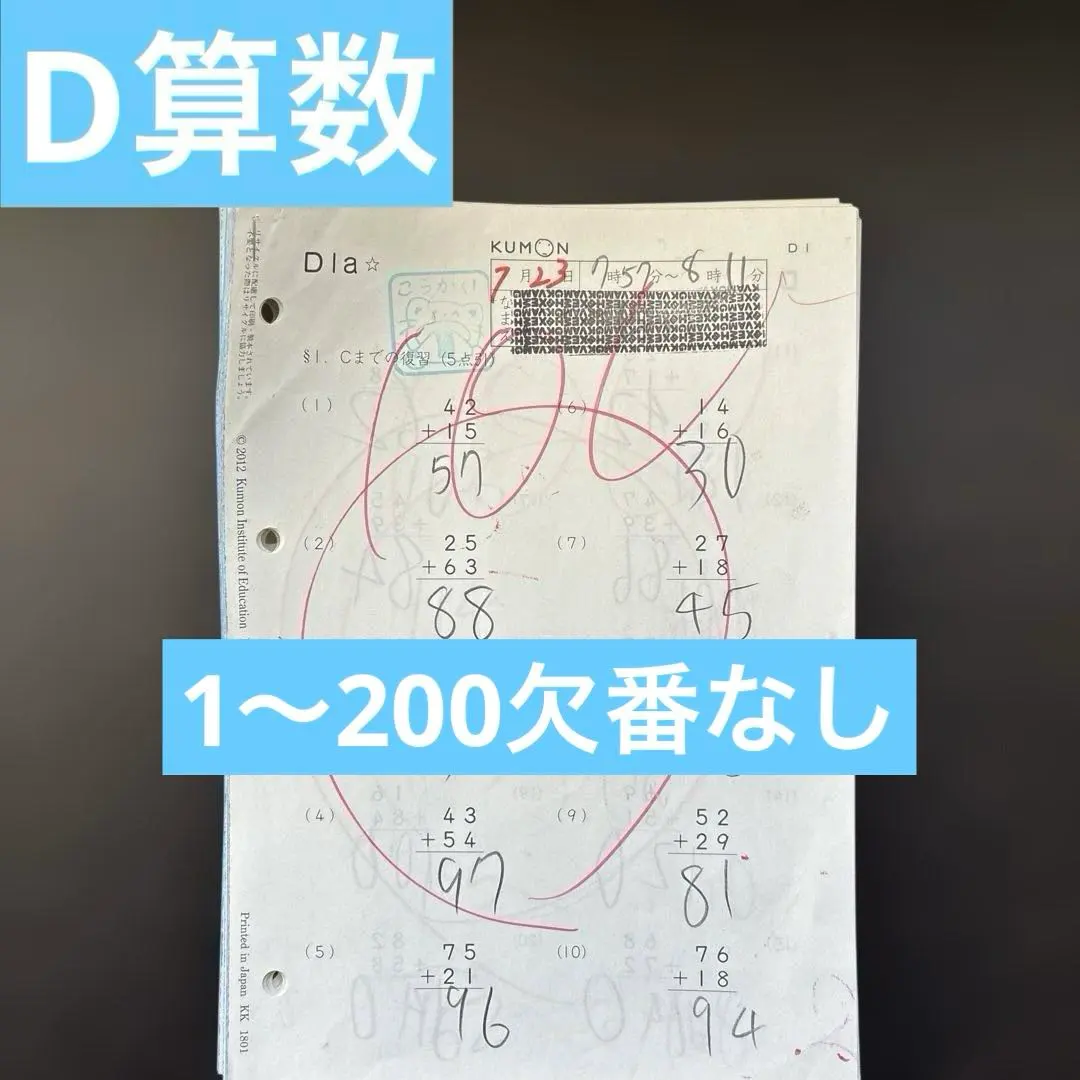 D算数
KUMON
D1a☆
D1
7月23日 7時57分〜8時11分
なまえ
§1. Cまでの復習 (5点引)
100
(1) 42
+15
57
(6) 14
+16
30
(2) 25
+63
88
(7) 27
+18
45
1〜200欠番なし
(4) 43
+54
97
(9) 52
+29
81
(5) 75
+21
96
(10) 76
+18
94
© 2012 Kumon Institute of Education
Printed in Japan KK 1801